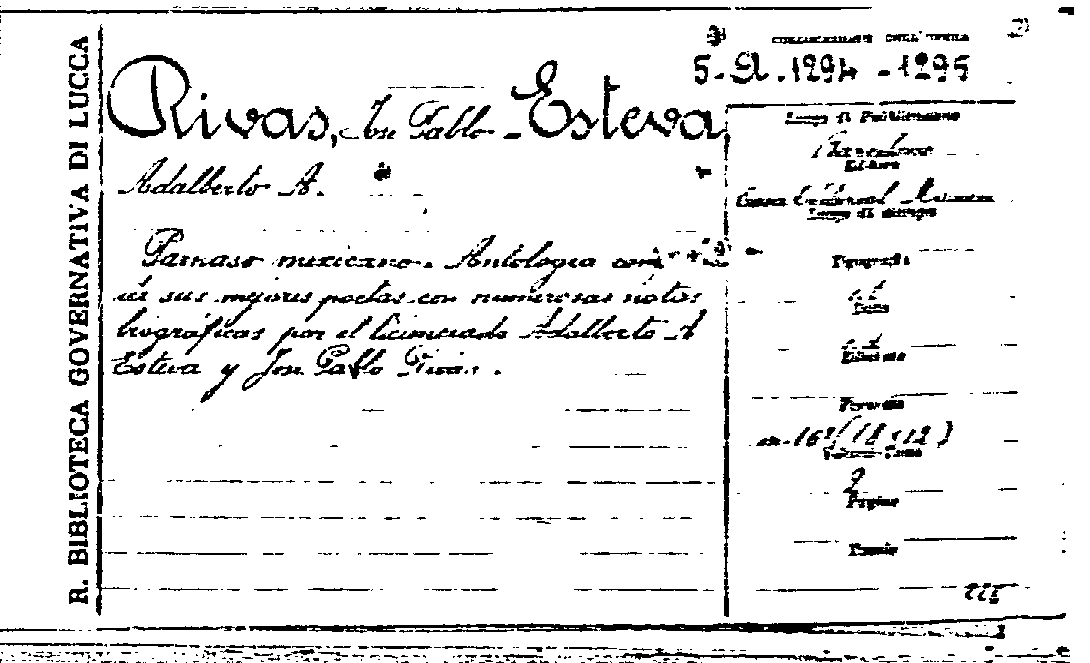 R. BIBLIOTECA GOVERNATIVA DI LUCCA
COLLOCAZIONE DELL'OPERA
5-A.1294-1295
Rivas, Jose Pablo - Esteva,
Adalberto A.
Parnaso mexicano. Antologia
de sus mejores poetas con numerosas notas
biográficas por el licenciado Adalberto A
Esteva y Jose Pablo Rivas.
Luogo di Pubblicazione
Barcelona
Editore
Casa Editorial
Luogo di stampa
Tipografia
Edizione
Formato
in-16º (18x12)
2
Pagine